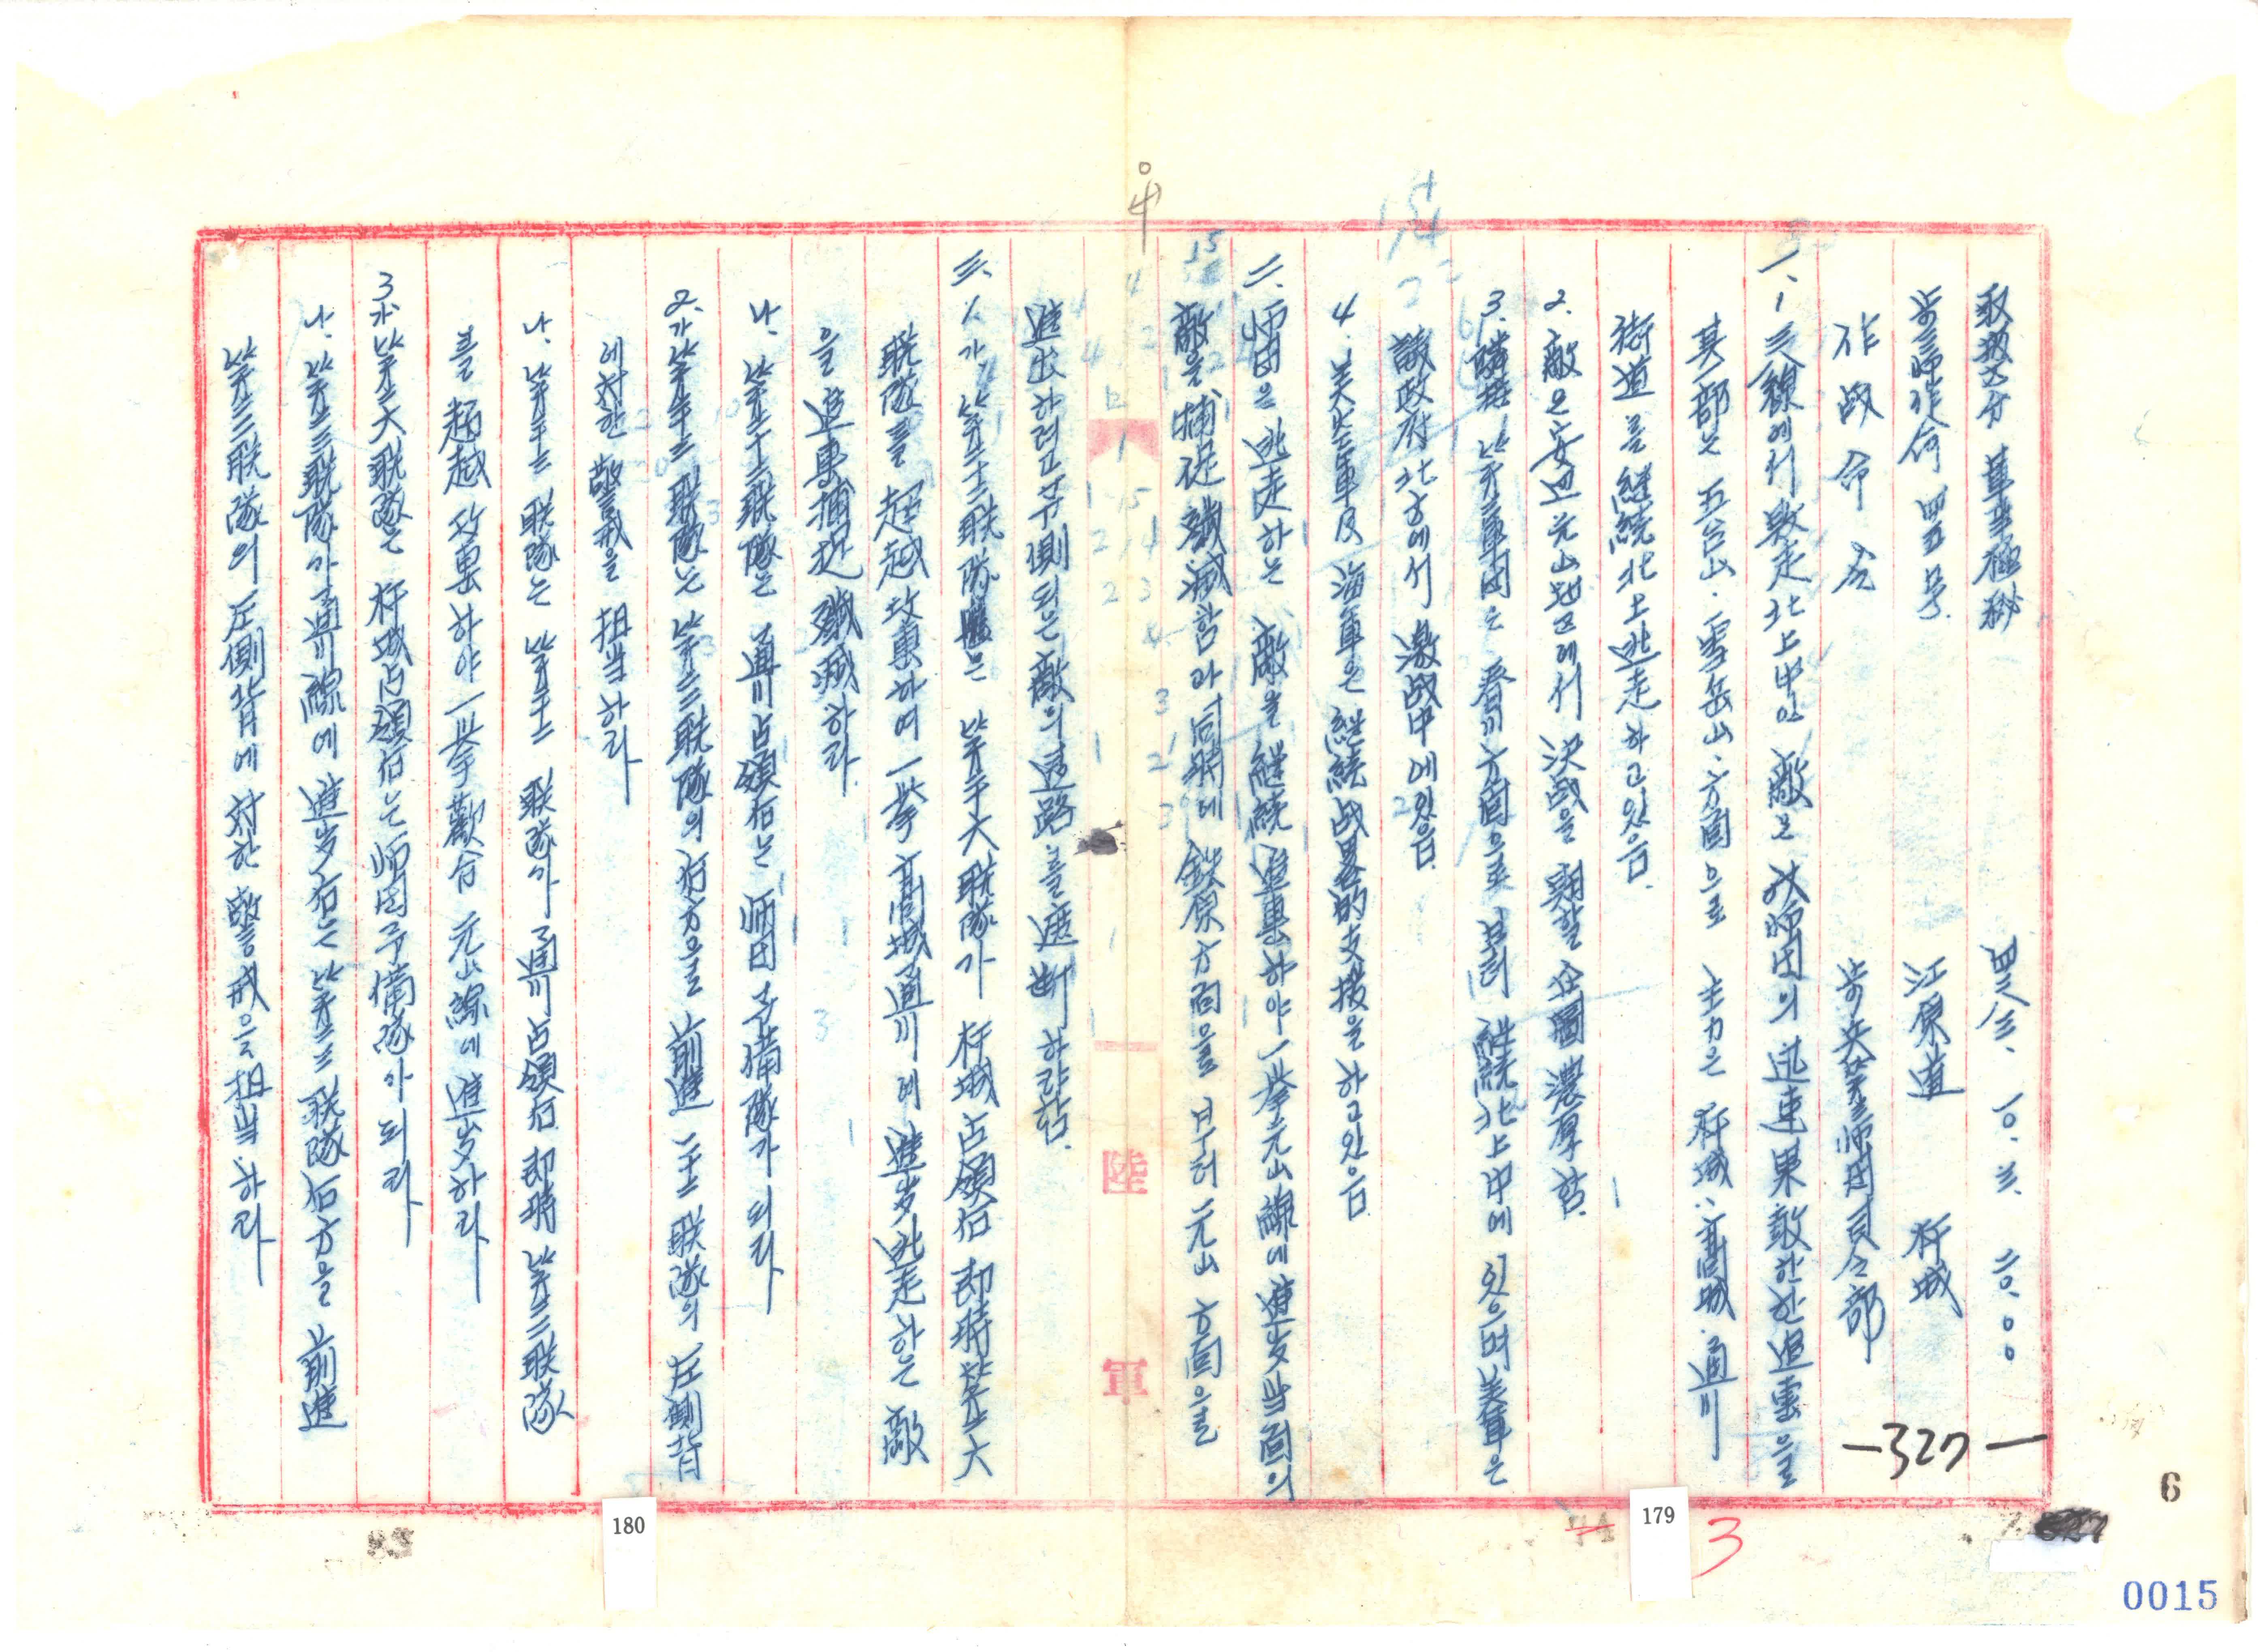 取扱区分 軍事極秘 四二八三. 一〇. 三. 二〇. 〇〇
步三師作命 第四五号. 江原道 杆城
作战命令 步兵第三師団司令部
一. 1 三八線에서 敗走北上中인 敵은 我師団의 迅速果敢한 追擊을
其一部는 五台山. 雪岳山. 方面으로 主力은 杆城. 高城. 通川
街道를 継続北上逃走하고있음.
2. 敵은 安辺 元山地区에서 決战을 期할 企圖濃厚함.
3. 隣接 第二軍団은 春川方面으로부터 継続北上中에 있으며 美軍은
議政府北方에서 激战中에있음.
4. 美空軍及海軍은 継続战畧的支援을 하고있음.
二. 师団은 逃走하는 敵을 継続追擊하야 一挙元山線에 進出当面의
敵을 捕捉殲滅함과同時에 鉄原方面으로부터 元山方面으로
進出하려고 予側되는 敵의 退路를 遮断하랴함.
三. 1. 가. 第二十三联隊는 第二十六联隊가 杆城占領后 即時 第二十六
联隊를 超越攻擊하여 一挙 高城通川에 進出 逃走하는 敵
을 追擊捕捉 殲滅하라.
나. 第二十三联隊는 通川占領后는 师団予備隊가 되라
2. 가. 第二十二联隊는 第二十三联隊의 右方으로 前進 二十三联隊의 左側背
에対한 警戒을 担当하라
나. 第二十二联隊는 第二十三联隊가 通川占領后 即時 第二十三联隊
를 超越攻擊하야 一挙歡谷元山線에 進出하라
3. 가. 第二十六联隊는 杆城占領后는 师団予備隊가 되라
나. 第二十三联隊가 通川線에 進出后는 第二十三联隊后方을 前進
第二十二联隊의 左側背에 対한 警戒을 担当하라
陸軍
-327-
180
179
3
6
0015